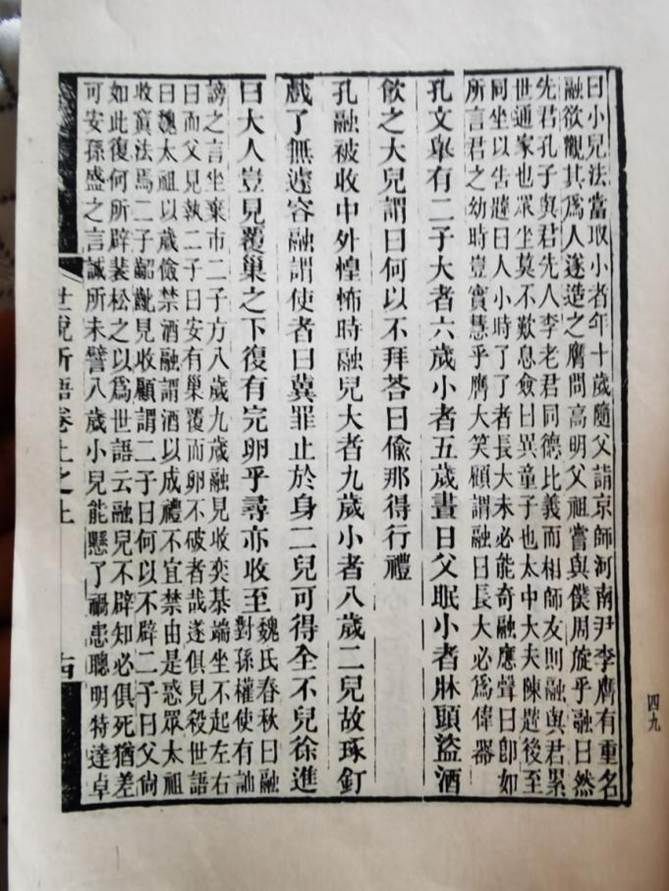 曰小兒法當取小者年十歲隨父詣京師河南尹李膺有重名
融欲觀其爲人遂造之膺問高明父祖嘗與僕周旋乎融曰然
先君孔子與君先人李老君同德比義而相師友則融與君累
世通家也眾坐莫不歎息僉曰異童子也太中大夫陳韙後至
同坐以告韙曰人小時了了者長大未必能奇融應聲曰即如
所言君之幼時豈實慧乎膺大笑顧謂融曰長大必爲偉器
孔文舉有二子大者六歲小者五歲晝日父眠小者牀頭盜酒
飲之大兒謂曰何以不拜荅曰偷那得行禮
孔融被收中外惶怖時融兒大者九歲小者八歲二兒故琢釘
戲了無遽容融謂使者曰冀罪止於身二兒可得全不兒徐進
曰大人豈見覆巢之下復有完卵乎尋亦收至
魏氏春秋曰融
對孫權使有訕
謗之言坐棄市二子方八歲九歲融見收奕棊端坐不起左右
曰而父見執二子曰安有巢覆而卵不破者哉遂俱見殺世語
曰魏太祖以歲儉禁酒融謂酒以成禮不宜禁由是惑眾太祖
收寘法焉二子齠齔見收顧謂二子曰何以不辟二子曰父尙
如此復何所辟裴松之以爲世語云融兒不辟知必俱死猶差
可安孫盛之言誠所未譬八歲小兒能懸了禍患聰明特達卓
世說新語卷上之上
十四
四九